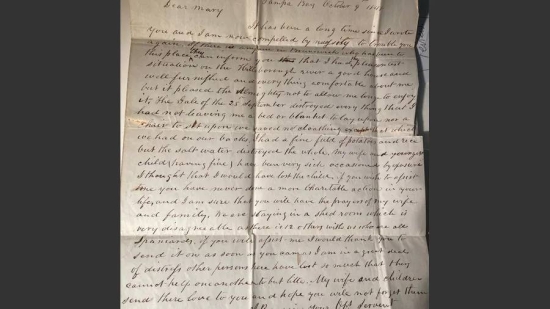 Tampa Bay October 9 1848
Dear Mary
It has been a long time since I wrote
you and I am now compelled by to trouble you
again
this place can inform you that I had a pleasant
situation on the Hillsborough river a good house and
quite furnished and everything comfortable about me
but it pleased the Almighty not to allow me long to enjoy
it, The Gale of the 25 September destroyed every thing that I
had not leaving me a bed or blanket to lay upon nor a
chair to sit upon we saved no cloathing but what
we had on our backs I had a fine field of potatoes and rice
but the salt water destroyed the whole. My wife and youngest
child (having five) have been very sick occasioned by exposure
I thought that I would have lost the child. if you wish to assist
me you have never done a more Charitable action in your
life, and I am sure that you will have the prayers of my wife
and family, We are staying in a shed room which is
very disagreable as there is 12 others with us who are all
Spaniards. if you will assist me I would thank you to
send it on as soon as you can, as I am in a great deal
of distress other persons here have lost so much that they
cannot help one another but little. My wife and children
send there love to you and hope you will not forget them
your Obt Servent